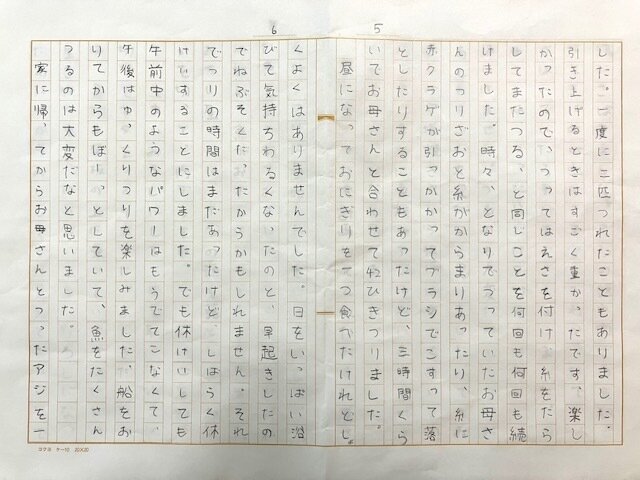 5
した。一度に三匹つれたこともありました。
引き上げるときはすごく重かったです。楽し
かったので、つってはえさを付け、糸をたら
してまたつる、と同じことを何回も何回も続
けました。時々、となりでつっていたお母さ
んのつりざおと糸がからまりあったり、糸に
赤クラゲが引っかかってブラシでこすって落
としたりすることもあったけど、三時間くら
いでお母さんと合わせて42ひきつりました。
昼になっておにぎりを一つ食べたけれどしょ
6
くよくはありませんでした。日をいっぱい浴
びて気持ちわるくなったのと、早起きしたの
でねぶそくだったからかもしれません。それ
でつりの時間はまだあったけど、しばらく休
けいすることにしました。でも休けいしても
午前中のようなパワーはもうでてこなくて、
午後はゆっくりつりを楽しみました。船をお
りてからもぼーっとしていて、魚をたくさん
つるのは大変だなと思いました。
家に帰ってからお母さんとつったアジを一
コクヨ ケ-10 20×20